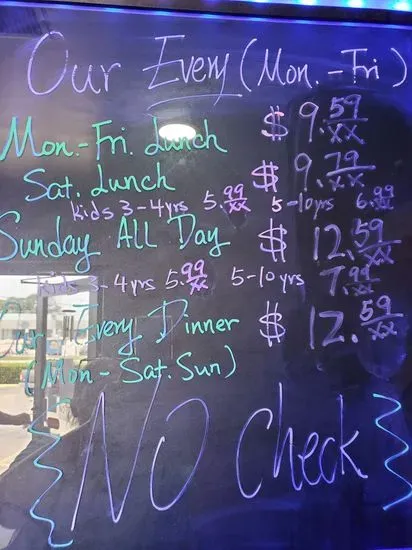 Our Every (Mon. - Fri)
Mon.-Fri. Lunch $ 9.59/xx
Sat. Lunch $ 9.79/xx
kids 3-4yrs 5.99/xx 5-10yrs 6.99/xx
Sunday All Day $ 12.59/xx
kids 3-4yrs 5.99/xx 5-10yrs 7.99/xx
Our Every Dinner $ 12.59/xx
(Mon - Sat. Sun)
NO Check